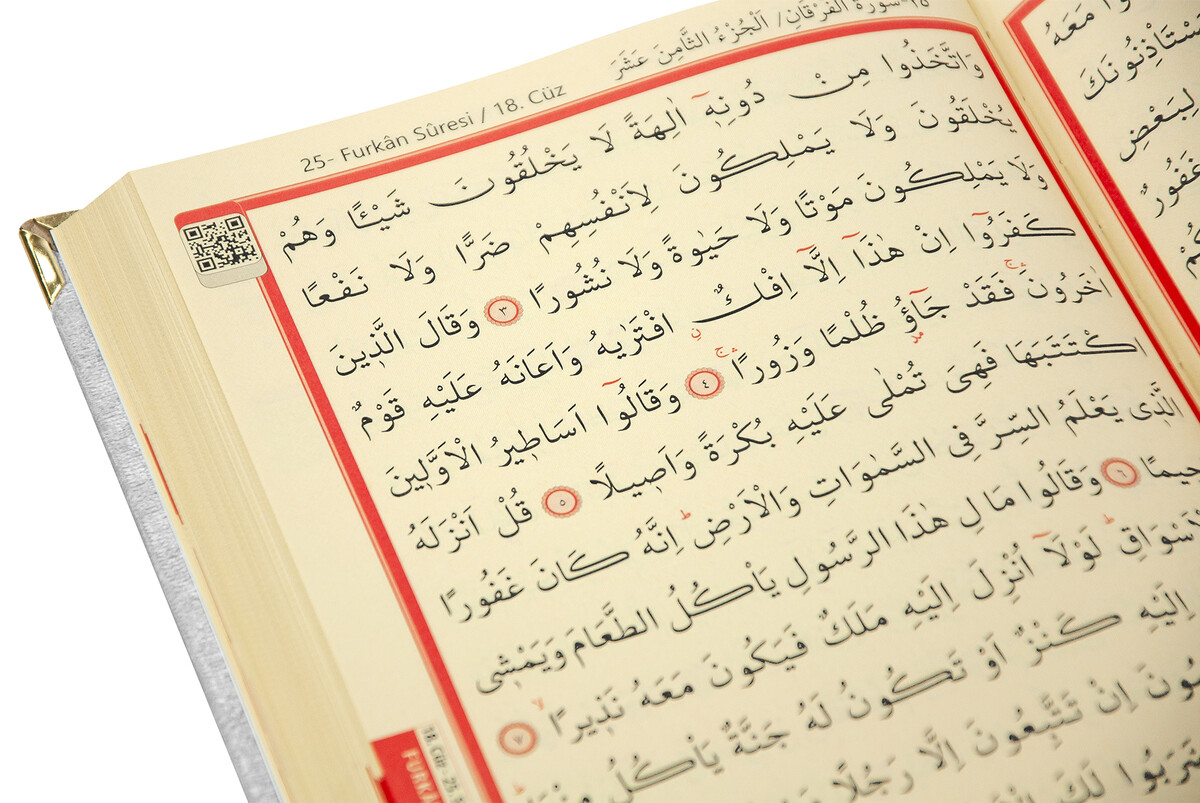 ٢٥-سُورَةُ الْفُرْقَانِ / اَلْجُزْءُ الثَّامِنَ عَشَرَ
25- Furkân Sûresi / 18. Cüz
وَاتَّخَذُوا مِنْ دُونِهٖٓ اٰلِهَةً لَا يَخْلُقُونَ شَيْـًٔا وَهُمْ
يُخْلَقُونَ وَلَا يَمْلِكُونَ لِاَنْفُسِهِمْ ضَرًّا وَلَا نَفْعًا
وَلَا يَمْلِكُونَ مَوْتًا وَلَا حَيٰوةً وَلَا نُشُورًا ﴿٣﴾ وَقَالَ الَّذٖينَ
كَفَرُٓوا اِنْ هٰذَٓا اِلَّٓا اِفْكٌ افْتَرٰيهُ وَاَعَانَهُ عَلَيْهِ قَوْمٌ
اٰخَرُونَ فَقَدْ جَٓاؤُ ظُلْمًا وَزُورًا ﴿٤﴾ وَقَالُٓوا اَسَاطٖيرُ الْاَوَّلٖينَ
اكْتَتَبَهَا فَهِىَ تُمْلٰى عَلَيْهِ بُكْرَةً وَاَصٖيلًا ﴿٥﴾ قُلْ اَنْزَلَهُ
الَّذٖى يَعْلَمُ السِّرَّ فِى السَّمٰوَاتِ وَالْاَرْضِ اِنَّهُ كَانَ غَفُورًا
حٖيمًا ﴿٦﴾ وَقَالُوا مَالِ هٰذَا الرَّسُولِ يَاْكُلُ الطَّعَامَ وَيَمْشٖى
اَسْوَاقِ لَوْلَٓا اُنْزِلَ اِلَيْهِ مَلَكٌ فَيَكُونَ مَعَهُ نَذٖيرًا ﴿٧﴾
اِلَيْهِ كَنْزٌ اَوْ تَكُونُ لَهُ جَنَّةٌ يَاْكُلُ
اِنْ تَتَّبِعُونَ اِلَّا رَجُلًا
لَكَ
مَعَهُ
لِبَعْضِ
غَفُورٌ
18. Cüz - 25.
FURKA